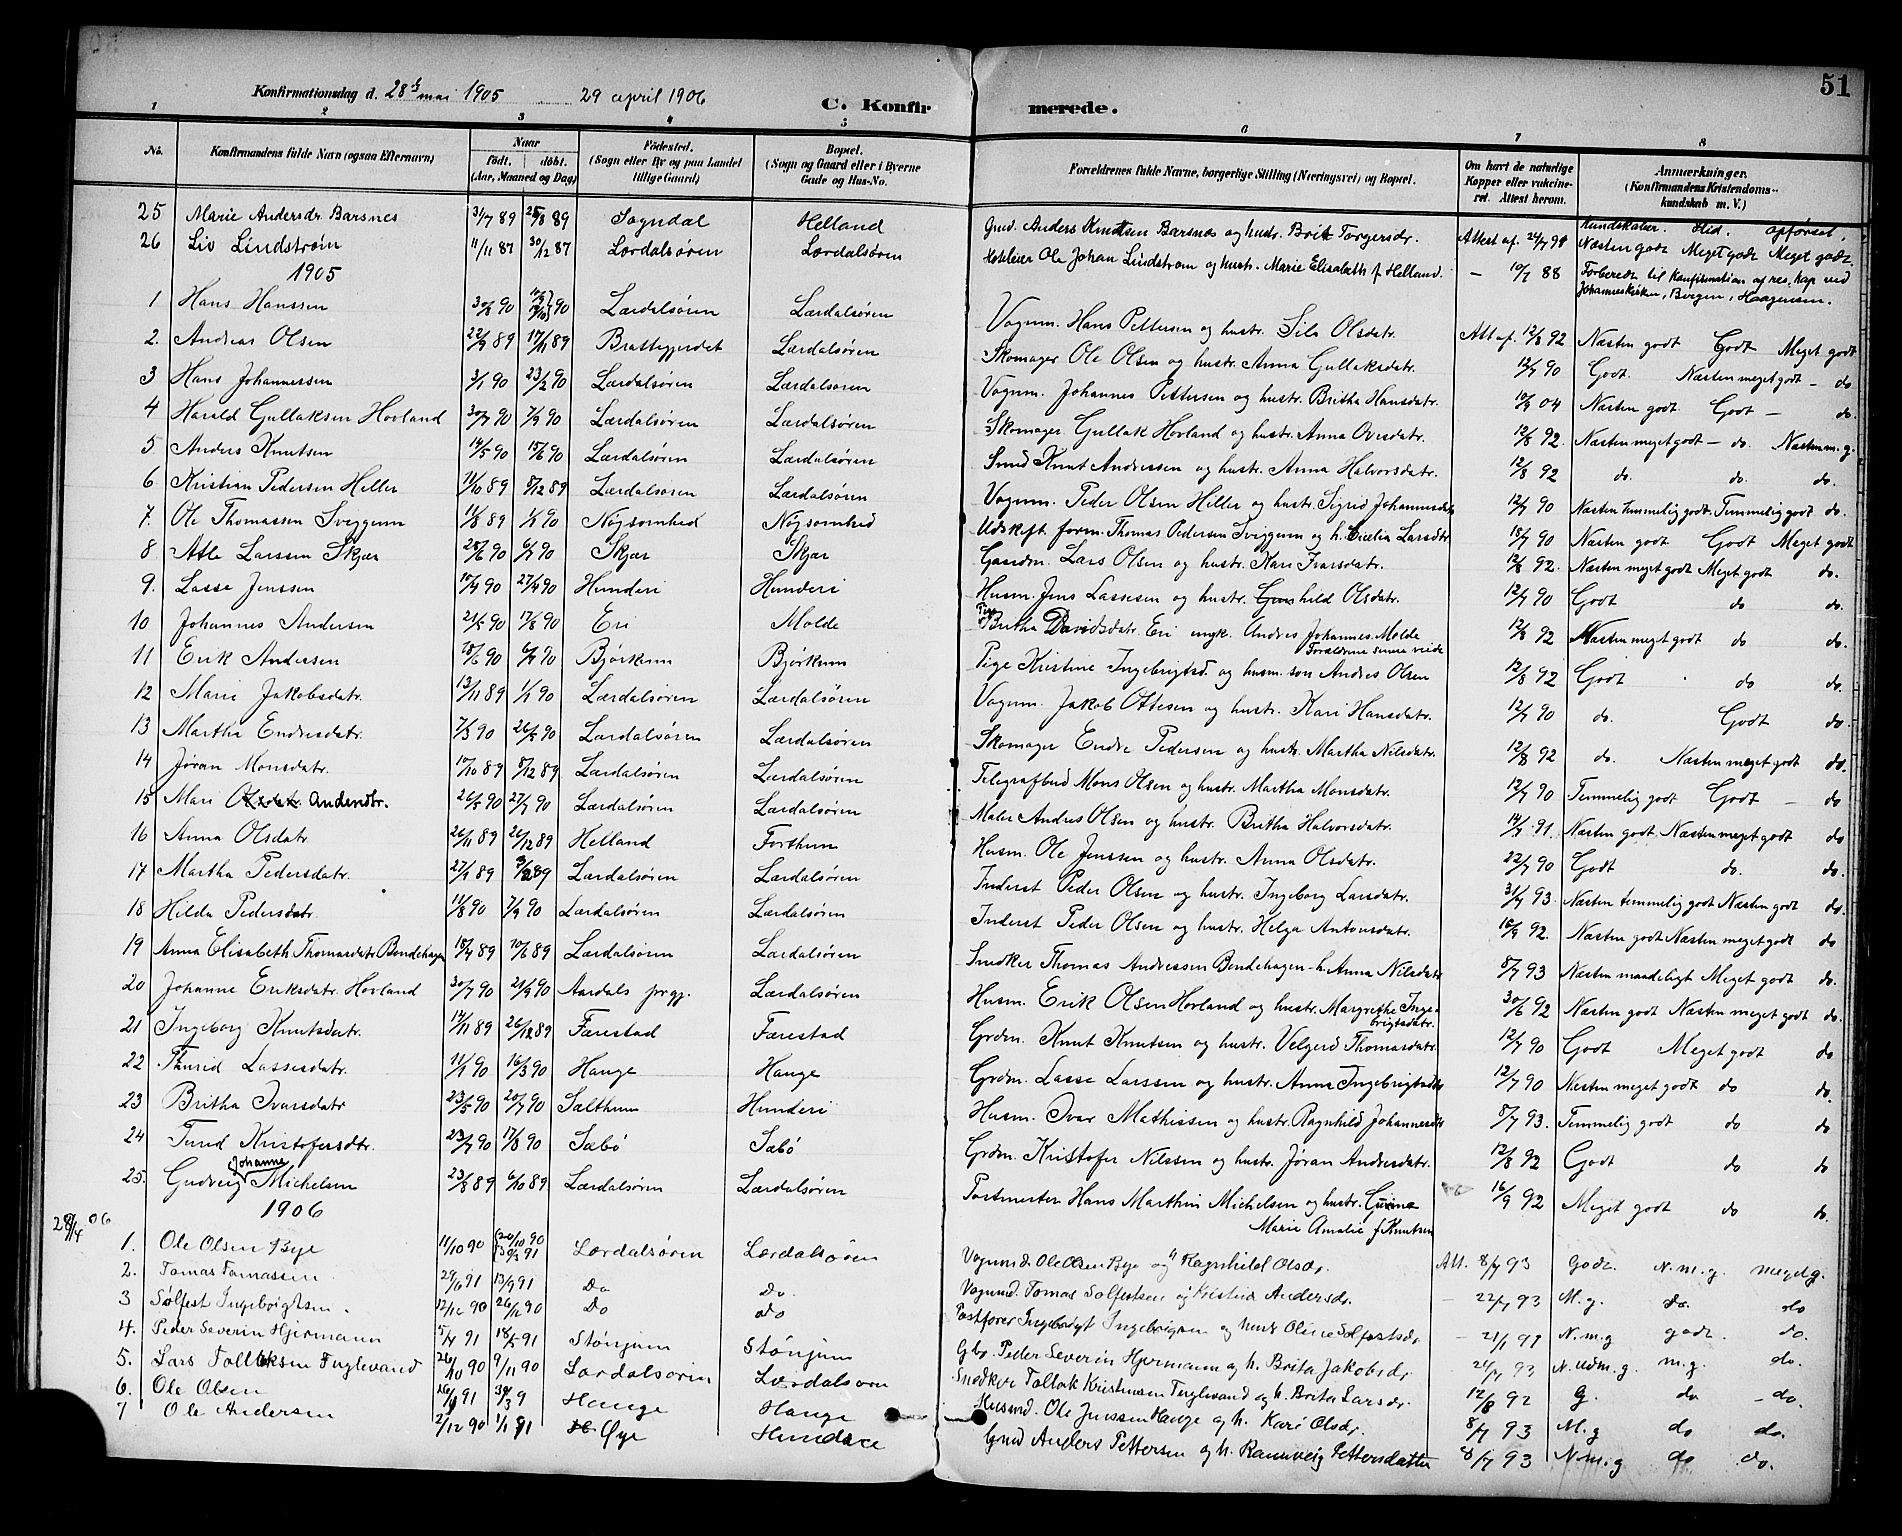 51
Konfirmationsdag d. 28de mai 1905 29 april 1906 C. Konfirmerede.
1 2 3 4 5 6 7 8
No. Konfirmandens fulde Navn (ogsaa Efternavn) Naar født. døbt. (Aar, Maaned og Dag) Fødested. (Sogn eller By og paa Landet tillige Gaard) Bopæl. (Sogn og Gaard eller i Byerne Gade og Hus-No. Forældrenes fulde Navne, borgerlige Stilling (Næringsvei) og Bopæl. Om havt de naturlige Kopper eller vakcineret. Attest herom. Anmærkninger. (Konfirmandens Kristendomskundskab m. V.)
Kundskaber. Flid. opførsel.
25 Marie Andersdr Barsnes 3/7 89 25/8 89 Sogndal Helland Gmd. Anders Knutsen Barsnes og hustr. Brit Torgersdr. Attest af 24/7 91 Næsten godt Meget godt Meget godt.
26 Liv Lindstrøm 11/11 87 30/12 87 Lærdalsøren Lærdalsøren Hoteleier Ole Johan Lindstrøm og hustr. Marie Elisabeth f. Helland. — 10/7 88 Forberedt til konfirmation af res. kap ved Johanneskirken, Bergen, Haagensen.
1905
1 Hans Hanssen 30/8 90 Lærdalsøren Lærdalsøren Vognm. Hans Pettersen og hustr. Sila Olsdatr. Att af. 12/8 92 Næsten godt Godt Meget godt
2. Andreas Olsen 22/9 89 17/11 89 Brattegjerdet Lærdalsøren Skomager Ole Olsen og hustr. Anna Gullaksdatr. 12/7 90 Godt. Næsten meget godt — do
3 Hans Johannessen 3/1 90 23/2 90 Lærdalsøren Lærdalsøren Vognm. Johannes Pettersen og hustr. Britha Hansdatr. 10/9 04 Næsten godt Godt — do.
4 Harald Gullaksen Hovland 30/7 90 7/9 90 Lærdalsøren Lærdalsøren Skomager Gullak Hovland og hustr. Anna Ovesdatr. 12/8 92 Næsten meget godt — do. Næsten m. g.
5 Anders Knutsen 14/5 90 15/6 90 Lærdalsøren Lærdalsøren Smed Knut Andressen og hustr. Anna Halvorsdatr. 12/8 92 do. do. do.
6 Kristian Pedersen Heller 11/10 89 8/12 89 Lærdalsøren Lærdalsøren Vognm. Peder Olsen Heller og hustr. Sigrid Johannesdatr 12/7 90 Næsten temmelig godt. Temmelig godt do.
7. Ole Thomassen Sviggum 11/8 89 1/1 90 Nøgsomhed Nøgsomhed Udskift. form. Thomas Pedersen Sviggum og h. Cecilia Larsdtr 18/7 90 Næsten godt Godt Meget godt
8 Atle Larssen Skjær 28/6 90 6/7 90 Skjær Skjær Gaardm. Lars Olsen og hustr. Kari Ivarsdatr. 12/8 92. Næsten meget godt Meget godt do.
9. Lasse Jenssen 15/4 90 27/4 90 Hunderi Hunderi Husm. Jens Lassesen og hustr. Gunhild Olsdatr. 12/7 90 Godt do do.
10 Johannes Andersen 21/5 90 17/8 90 Eri Molde Pige Britha Davidsdatr. Eri ungk. Andres Johannes. Molde Forældrene senere viede 12/8 92 Næsten meget godt do do
11 Erik Andersen 28/6 90 6/7 90 Bjørkum Bjørkum Pige Kristine Ingebrigtsd. og husm. søn Andres Olsen 12/8 92 Godt do do.
12 Mari Jakobsdatr. 13/11 89 1/1 90 Lærdalsøren Lærdalsøren Vognm. Jakob Ottesen og hustr. Kari Hansdatr. 12/7 90 do. Godt do.
13 Martha Endresdatr. 7/3 90 26/5 90 Lærdalsøren Lærdalsøren Skomager Endre Pedersen og hustr. Martha Nilsdatr. 12/8 92 do. Næsten meget godt do.
14 Jøran Monsdatr. 15/10 89 8/12 89 Lærdalsøren Lærdalsøren Telegrafbud Mons Olsen og hustr. Martha Monsdatr. 12/7 90 Temmelig godt Godt — do
15 Mari Olsdatr. Andersdtr. 26/5 90 27/7 90 Lærdalsøren Lærdalsøren Maler Andres Olsen og hustr. Britha Halvorsdatr. 14/7 91. Næsten godt Næsten meget godt do
16 Anna Olsdatr 26/11 89 26/12 89 Helland Forthun Husm. Ole Jenssen og hustr. Anna Olsdatr. 22/7 90 Godt do. do.
17 Martha Pedersdatr. 27/1 89 3/2 89 Lærdalsøren Lærdalsøren Inderst Peder Olsen og hustr. Ingeborg Larsdatr. 31/7 93. Næsten temmelig godt Næsten godt do.
18 Hilda Pedersdatr. 11/8 90 7/9 90 Lærdalsøren Lærdalsøren Inderst Peder Olsen og hustr. Helga Antonsdatr. 16/9 92. Næsten godt Næsten meget godt do
19 Anna Elisabeth Thomasdatr Bendehagen 18/7 89 10/8 89 Lærdalsøren Lærdalsøren Snedker Thomas Andressen Bendehagen h. Anna Nilsdatr 8/7 93 Næsten maadeligt Meget godt do.
20 Johanne Eriksdatr. Hovland 30/7 90 21/9 90 Aardals prgj. Lærdalsøren Husm. Erik Olsen Hovland og hustr. Margrethe Ingebrigtsdatr. 30/6 92 Næsten godt Næsten meget godt do.
21 Ingeborg Knutsdatr. 14/11 89 26/12 89 Færestad Færestad Grdm. Knut Knutsen og hustr. Velgerd Thomasdatr. 12/7 90 Godt Meget godt do
22 Thurid Lassesdatr. 11/1 90 16/3 90 Hauge Hauge Grdm. Lasse Larssen og hustr. Anna Ingebrigtsdtr 12/7 90 Næsten meget godt do do.
23 Britha Ivarsdatr 23/5 90 20/7 90 Salthun Hunderi Husm. Ivar Mathissen og hustr. Ragnhild Johannesdtr 8/7 93. Temmelig godt do do
24 Turid Kristofersdtr. 23/7 90 17/8 90 Sæbø Sæbø Grdm. Kristofer Nilssen og hustr. Jøran Andresdatr. 12/8 92 Godt do do
25. Gudveig Johanne Michelsen 23/8 89 6/10 89 Lærdalsøren Lærdalsøren Postmester Hans Marthin Michelsen og hustr. Marie Amalie f. Knutsen 16/9 92 Meget godt do do.
1906
29/4 06
1. Ole Olsen Bye 11/10 90 Lærdalsøren Lærdalsøren Vognmd. Ole Olsen Bye og Ragnhild Olsdr. Att. 8/7 93 Godt. N. m. g. meget g.
2. Tomas Tomassen 29/6 91 13/9 91 Do Do. Vognmd. Tomas Solfestsen og Kristine Andersdr. — 22/7 93 M. g. do. do
3 Solfest Ingebrigtsen. 12/12 90 26/12 90 Do do Postfører Ingebrigt Ingebrigtsen og hustr Oline Solfestsdr — 21/7 91 N. m. g godt. do.
4. Peder Severin Hjermann 5/4 91 18/5 91 Stønjum Stønjum Gbr. Peder Severin Hjermann og h. Brita Jakobsdr — 24/7 93 N. Udm. g. m. g. do.
5. Lars Tollaksen Fuglevand 26/10 90 9/11 90 Lærdalsøren Lærdalsøren Snedker Tollak Kristensen Fuglevand og h. Brita Larsdr. 12/8 92 G. do — do.
6. Ole Olsen Hauge Hauge Husmd. Ole Jenssen Hauge og h. Kari Olsdr. 8/7 93 M. g do do.
7 Ole Andersen 2/12 90 1/1 91 Øye Gmd Anders Pettersen og h. Rannveig Pettersdatter 8/7 93 N m. g do do.